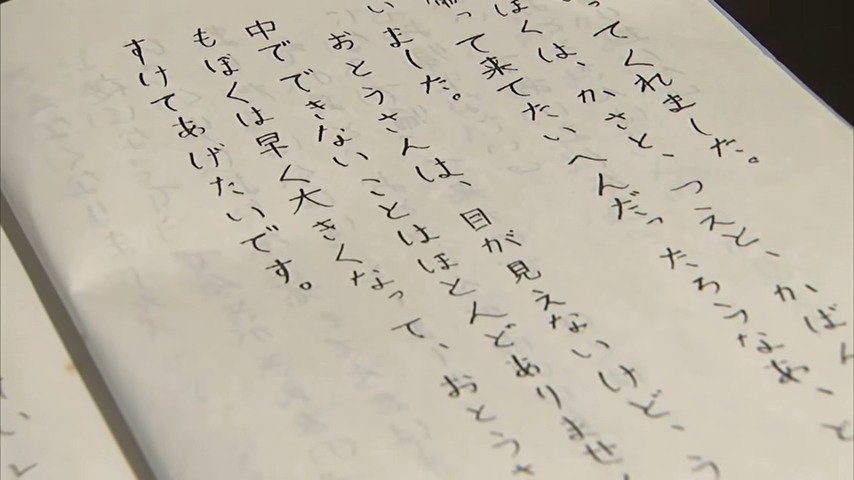 ってくれました。
ぼくは、かさと、つえと、かばんと
って来てたいへんだったろうなあ、と
いました。
おとうさんは、目が見えないけど、う
中でできないことはほとんどありませ
もぼくは早く大きくなって、おとうさ
すけてあげたいです。